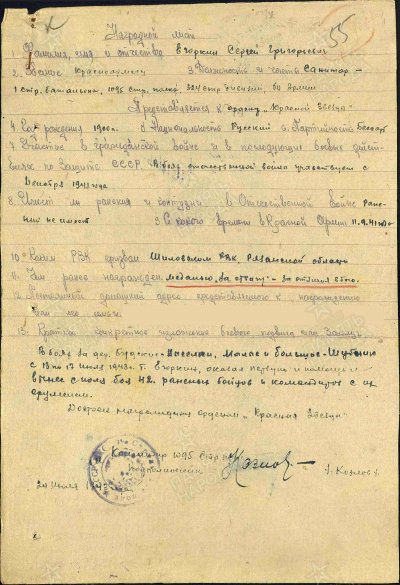 55
Наградной лист
1. Фамилия, имя и отчество Егоркин Сергей Григорьевич
2. Звание Красноармеец 3. Должность и часть Санитар –
1 стр. батальона, 1095 стр. полка, 324 стр. дивизии, армии
Представляется к ордену „Красная Звезда“
4. Год рождения 5. Национальность Русский 6. Партийность
7. Участие в гражданской войне и в последующих боевых дейст-
виях по защите СССР. В отечественной войне участвует с
Декабря 1941 года
8. Имеет ли ранения и контузии в Отечественной Войне Ране-
ний не имеет 9. С какого времени в Красной Армии 11.9.41 года
10. Каким РВК призван Шиловским РВК, Рязанской области
11. Чем ранее награжден Медалью „За отвагу“ –
12. Постоянный домашний адрес представляемого к награждению
или его семьи.
13. Краткое конкретное изложение боевого подвига или заслуг
В боях за дер. Малое и Большое
с 13 по 17 июля 1943 г. т. Егоркин, оказал первую помощь и
вынес с поля боя 42 раненых бойцов и командиров с их
оружием.
Достоин награждения орденом „Красная Звезда“
Командир 1095 Стр.
подполковник
/ Козлов /
20 июля 1943